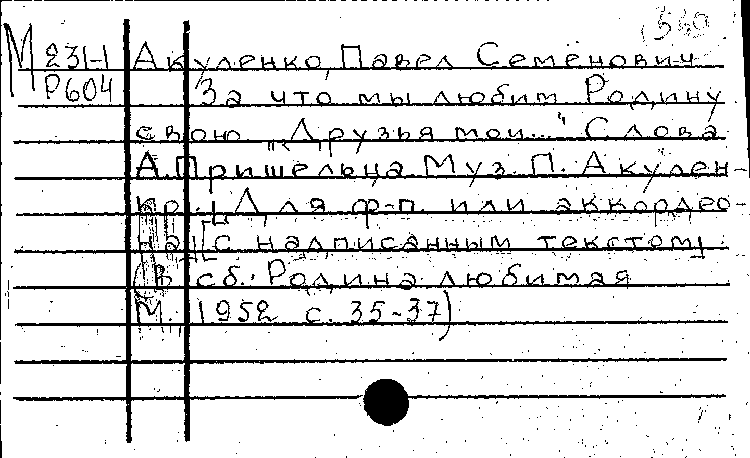 560
М 231-1 Акуленко, Павел Семёнович
Р604 За что мы любим Родину
свою „Друзья мои..." Слова
А. Пришельца Муз. П. Акулен-
ко. [Для ф-п. или аккордео-
на] [с надписанным текстом]
(В сб.: Родина любимая
М. 1952 с. 35-37)